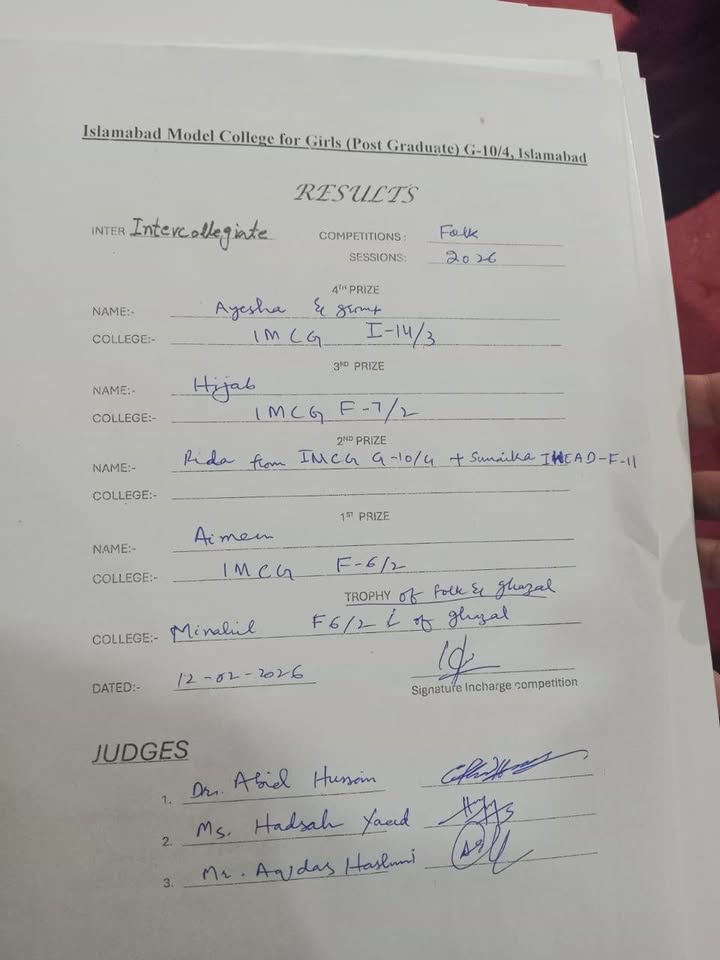 Islamabad Model College for Girls (Post Graduate) G-10/4, Islamabad
RESULTS
INTER Intercollegiate COMPETITIONS: Folk
SESSIONS: 2026
4TH PRIZE
NAME:- Ayesha & group
COLLEGE:- IMCG I-14/3
3RD PRIZE
NAME:- Hijab
COLLEGE:- IMCG F-7/2
2ND PRIZE
NAME:- Rida from IMCG G-10/4 + IHEAD-F-11
COLLEGE:-
1ST PRIZE
NAME:- Aimen
COLLEGE:- IMCG F-6/2
TROPHY of folk & ghazal
COLLEGE:- Minahil F6/2 of ghazal
DATED:- 12-02-2026
Signature Incharge competition
JUDGES
1. Dr. Abid Hussain
2. Ms. Hadsah
3. Mr. Aqdas Hashmi